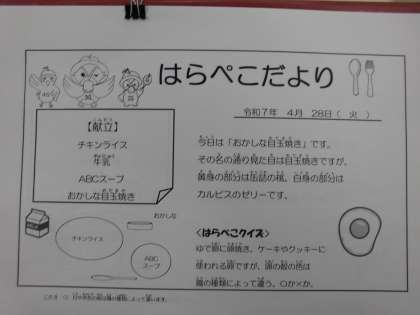 はらぺこだより
令和7年 4月 28日( 火 )
【献立】
チキンライス
牛乳
ABCスープ
おかしな目玉焼き
今日は「おかしな目玉焼き」です。
その名の通り見た目は目玉焼きですが、
黄身の部分は缶詰の桃、白身の部分は
カルピスのゼリーです。
おかしな
チキンライス
ABC
スープ
<はらぺこクイズ>
ゆで卵に卵焼き、ケーキやクッキーに
使われる卵ですが、卵の殻の色は
鶏の種類によって違う。〇か×か。